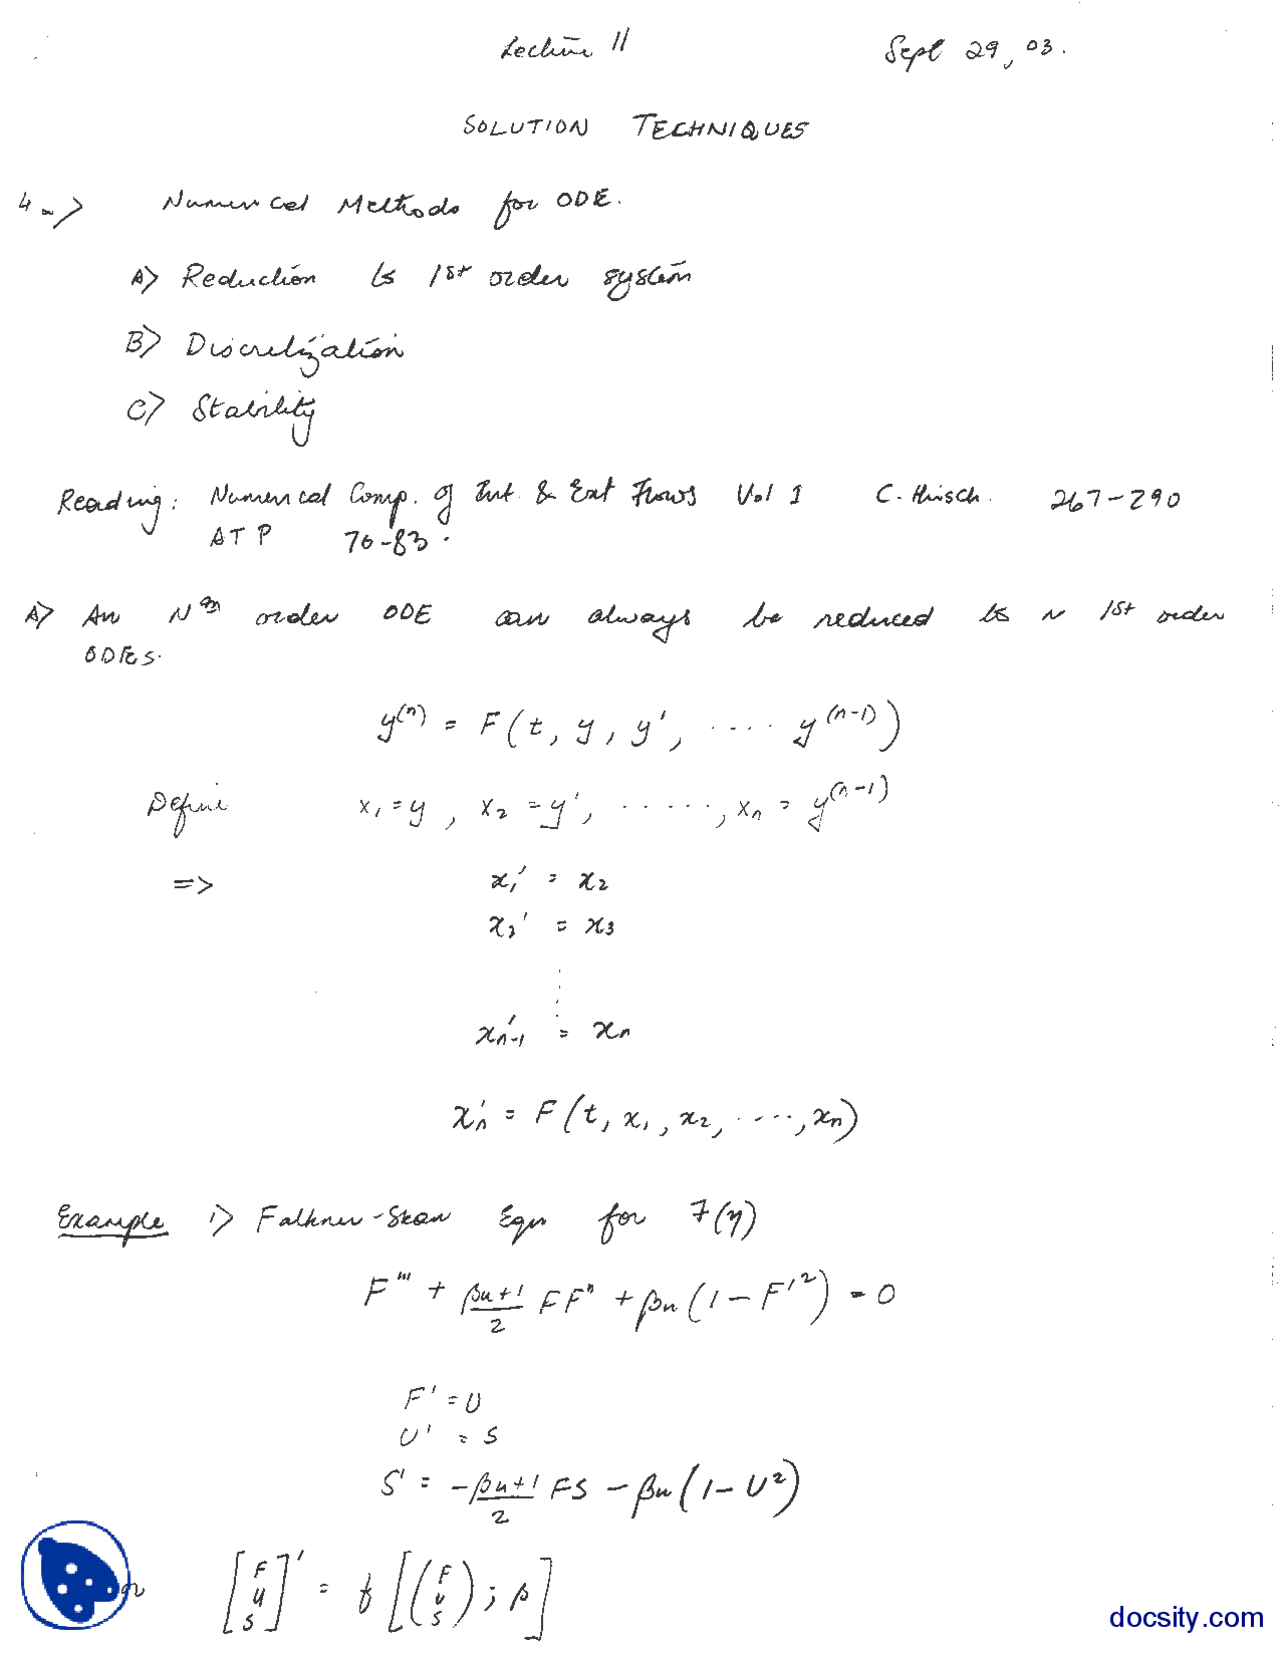 Lecture 11 Sept 29, 03.
SOLUTION TECHNIQUES
4.> Numerical Methods for ODE.
A> Reduction to 1st order system
B> Discretization
C> Stability
Reading: Numerical Comp. of Int. & Ext Flows Vol 1 C. Hirsch. 267-290
ATP 76-83.
A> An Nth order ODE can always be reduced to N 1st order
ODEs.
y^(n) = F(t, y, y', .... y^(n-1))
Define x₁ = y, x₂ = y', ....., xₙ = y^(n-1)
=> x₁' = x₂
x₂' = x₃
⋮
x'ₙ₋₁ = xₙ
x'ₙ = F(t, x₁, x₂, ...., xₙ)
Example 1> Falkner-Skan Eqn for F(η)
F''' + (βu+1)/2 FF'' + βu(1 - F'²) = 0
F' = U
U' = S
S' = -(βu+1)/2 FS - βu(1 - U²)
or [F U S]' = f[(F U S); β]
docsity.com